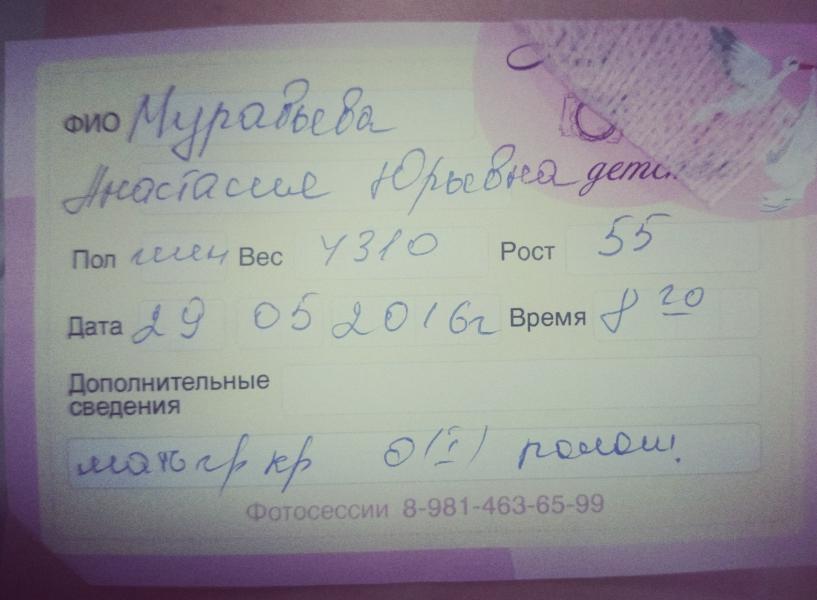 ФИО Муравьева
Анастасия Юрьевна детс
Пол жен Вес 4310 Рост 55
Дата 29 05 2016г Время 8 20
Дополнительные
сведения
мать гр кр 0(I) полож.
Фотосессии 8-981-463-65-99